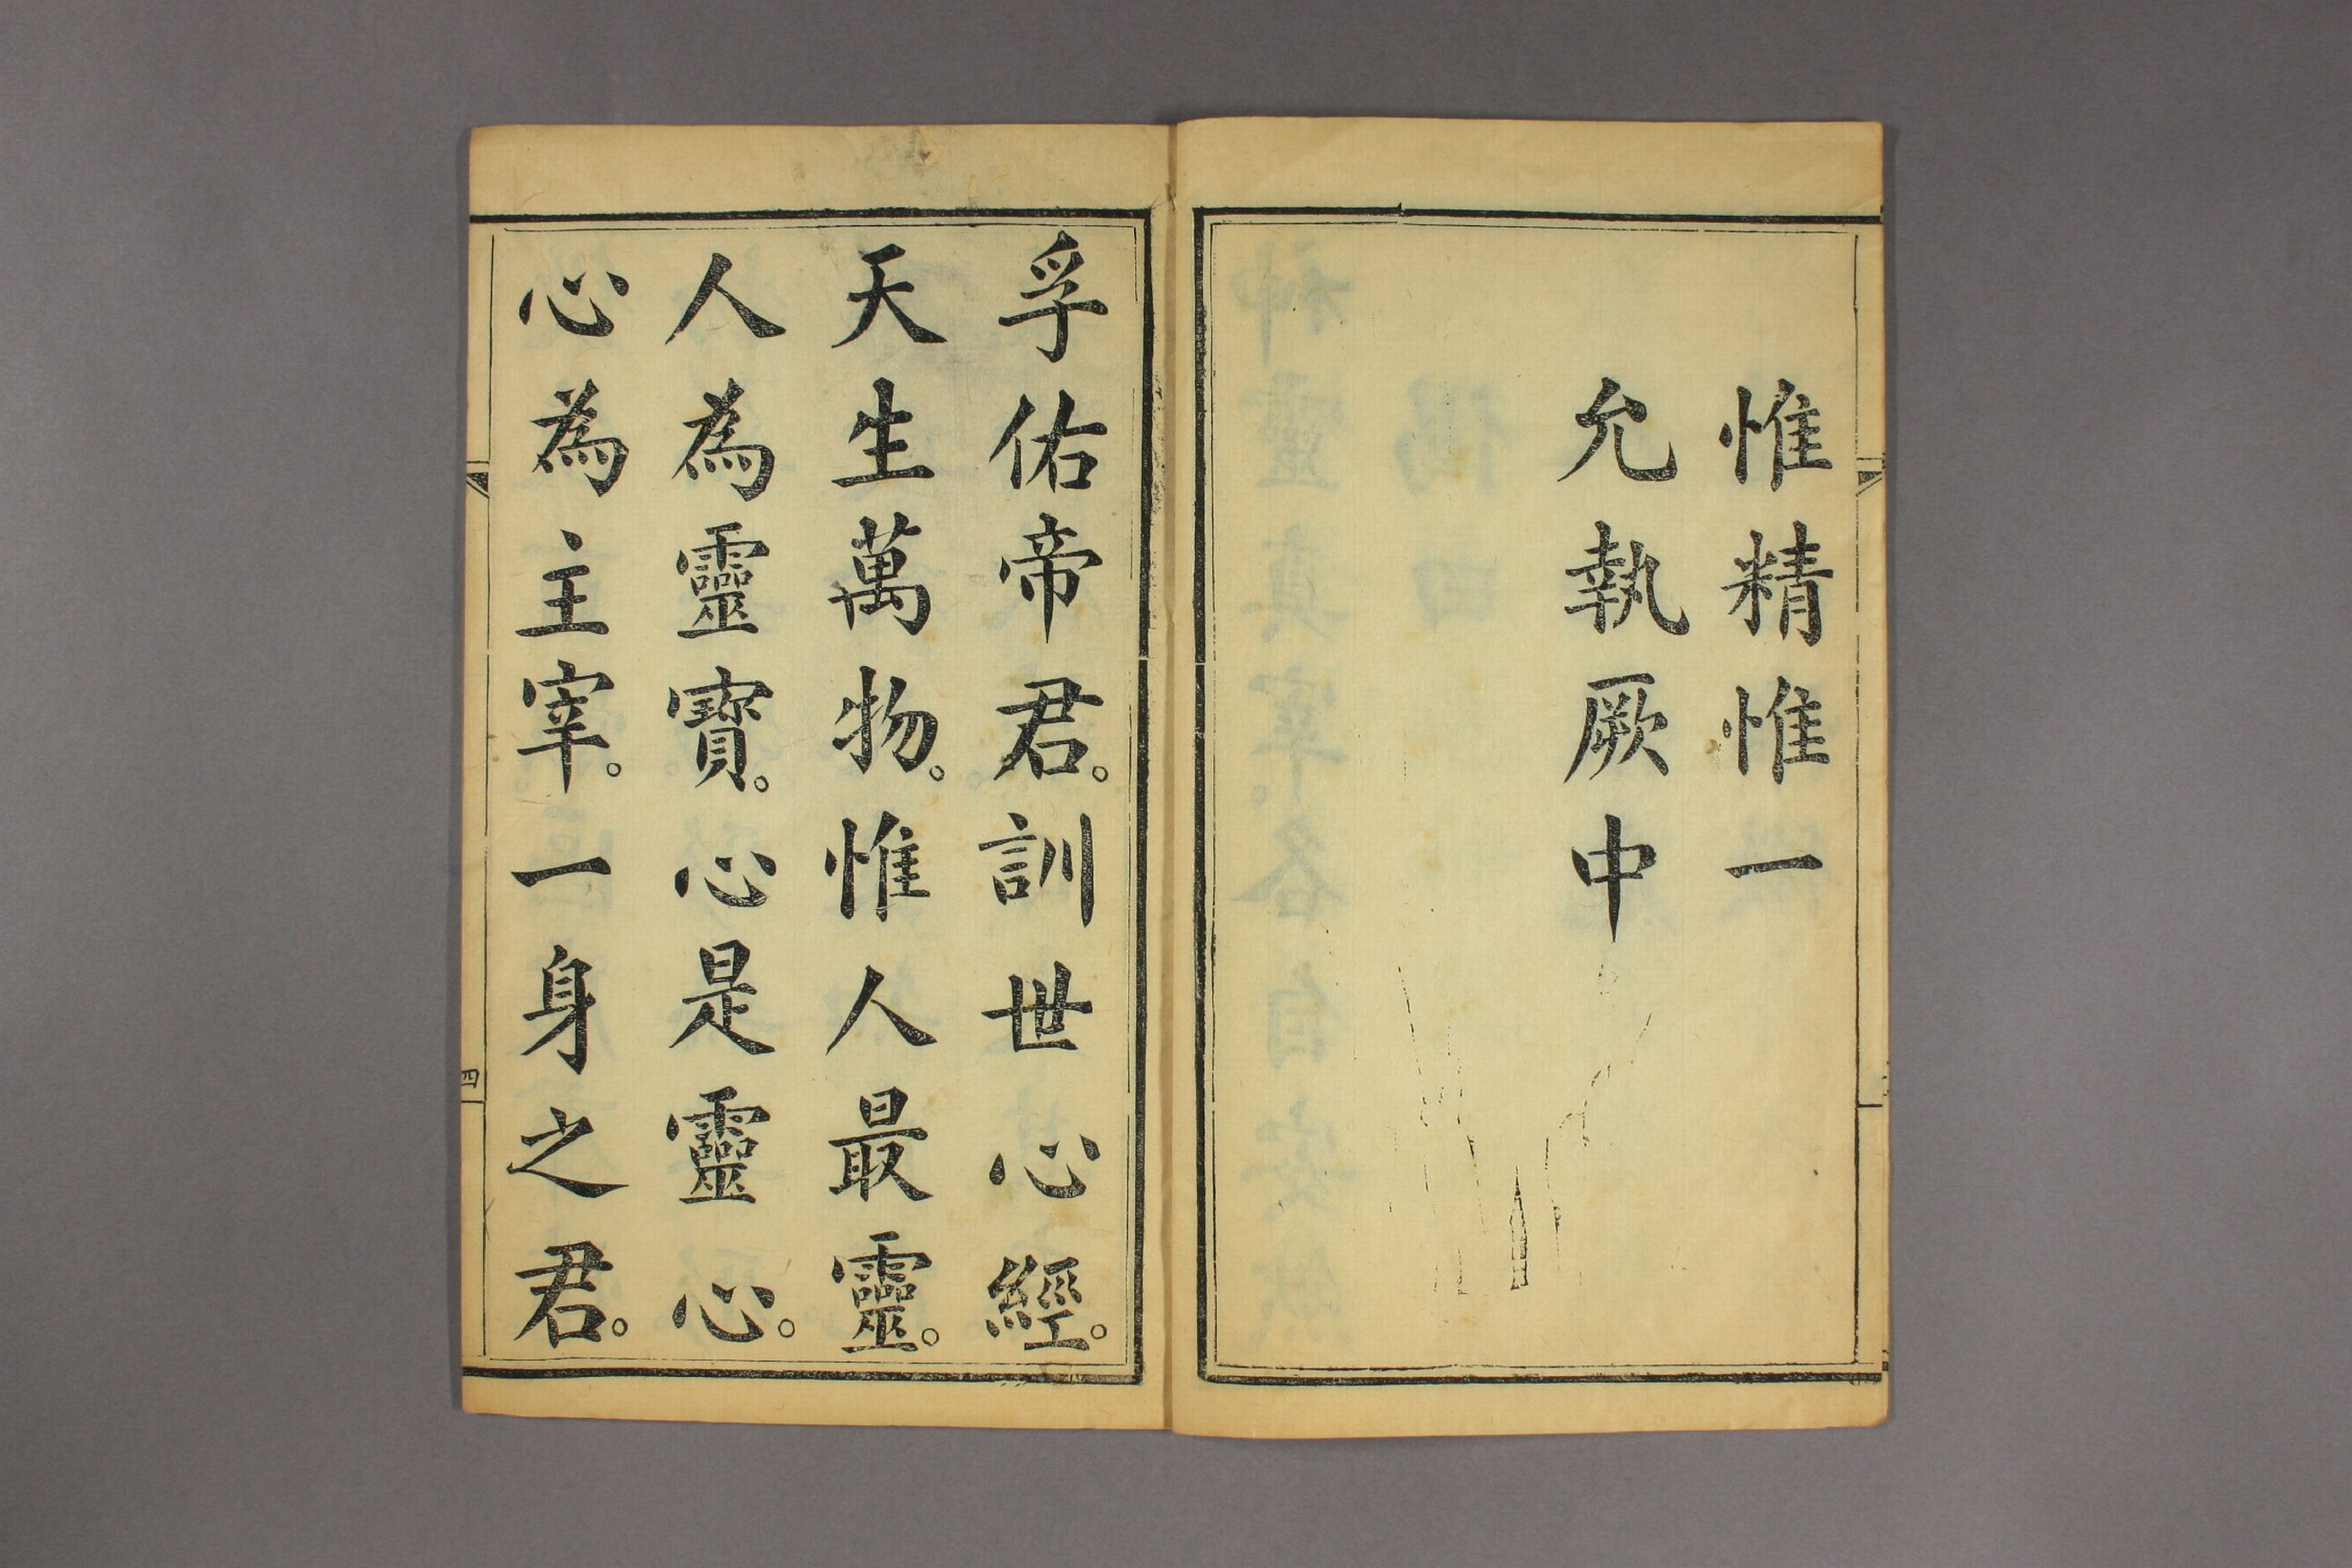 惟精惟一
允執厥中
孚佑帝君。訓世心經。
天生萬物。惟人最靈。
人為靈寶。心是靈心。
心為主宰。一身之君。
四